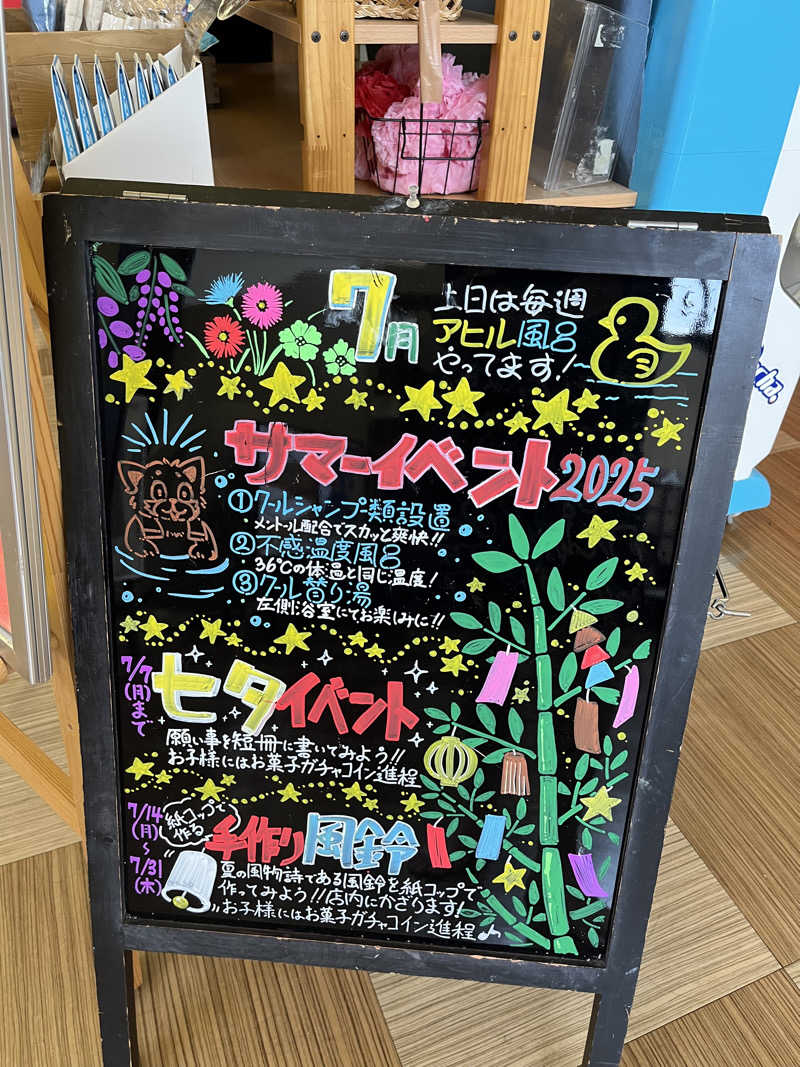 7月
土日は毎週
アヒル風呂
やってます!
サマーイベント2025
①クールシャンプ類設置
メントール配合でスカッと爽快!!
②不感温度風呂
36℃の体温と同じ温度!
③クール替り湯
左側浴室にてお楽しみに!!
7/7(月)まで
七夕イベント
願い事を短冊に書いてみよう!!
お子様にはお菓子ガチャコイン進程
7/14(月)~7/31(木)
紙コップで作る
手作り風鈴
夏の風物詩である風鈴を紙コップで
作ってみよう!!店内にかざります!
お子様にはお菓子ガチャコイン進程♪